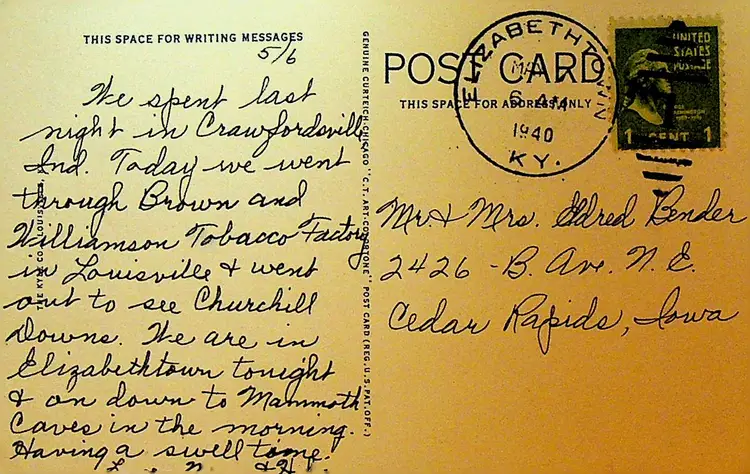 THIS SPACE FOR WRITING MESSAGES
5/6
We spent last
night in Crawfordsville
Ind. Today we went
through Brown and
Williamson Tobacco Factory
in Louisville & went
out to see Churchill
Downs. We are in
Elizabethtown tonight
& on down to Mammoth
Caves in the morning.
Having a swell time.
GENUINE CURTEICH-CHICAGO "C.T. ART-COLORTONE" POST CARD (REG. U.S. PAT. OFF.)
POST CARD
THIS SPACE FOR ADDRESS ONLY
ELIZABETHTOWN
6 AM
1940
KY.
UNITED
STATES
POSTAGE
1 CENT 1
Mr. & Mrs. Eldred Bender
2426 - B. Ave. N.E.
Cedar Rapids, Iowa